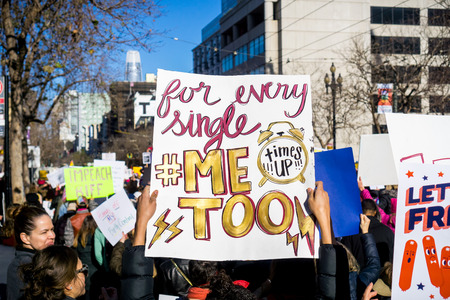 for every
single
#ME
TOO
times
UP!!!
IMPEACH
BIFF
LET
FR